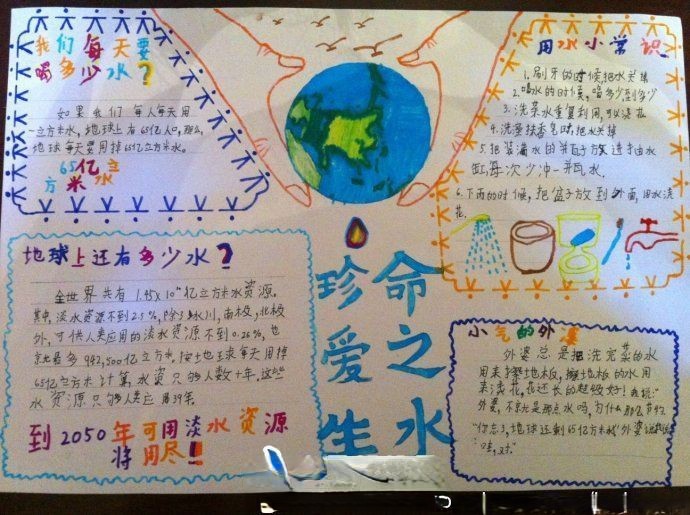 我们每天要
喝多少水?
如果我们每人每天用
一立方米水,地球上有65亿人口,那么,
地球每天要用掉65亿立方米水。
65亿立
方米水
用水小常识
1.刷牙的时候把水关掉
2.喝水的时候,喝多少到多少
3.洗菜水重复利用,可以浇花
4.洗手抹香皂时把水关掉
5.把装满水的瓶子放进抽水
缸,每次少冲一瓶水.
6.下雨的时候,把盆子放到外面,用水浇
花.
地球上还有多少水?
全世界共有1.45×10亿立方米水资源.
其中,淡水资源不到2.5%,除了冰川,南极,北极
外,可供人类应用的淡水资源不到0.26%,也
就是多942,500亿立方米,按地球每天用掉
65亿立方米计算,水资只够人数十年,这些
水资源只够人类应用39年.
到2050年可用淡水资源
将用尽!
珍爱生
命之水
小气的外婆
外婆总是把洗完菜的水
用来擦地板,擦地板的水用
来浇花,花还长的超级好!我说:"
外婆,不就是那点水吗,为什么那么节约
"你忘了,地球还剩65亿立方米水"外婆说
"哇,对."